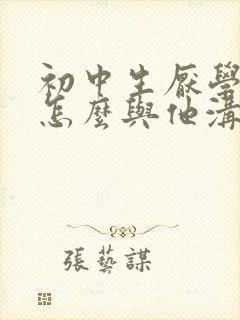 初中生厭學
怎麼與他溝
張藝謀